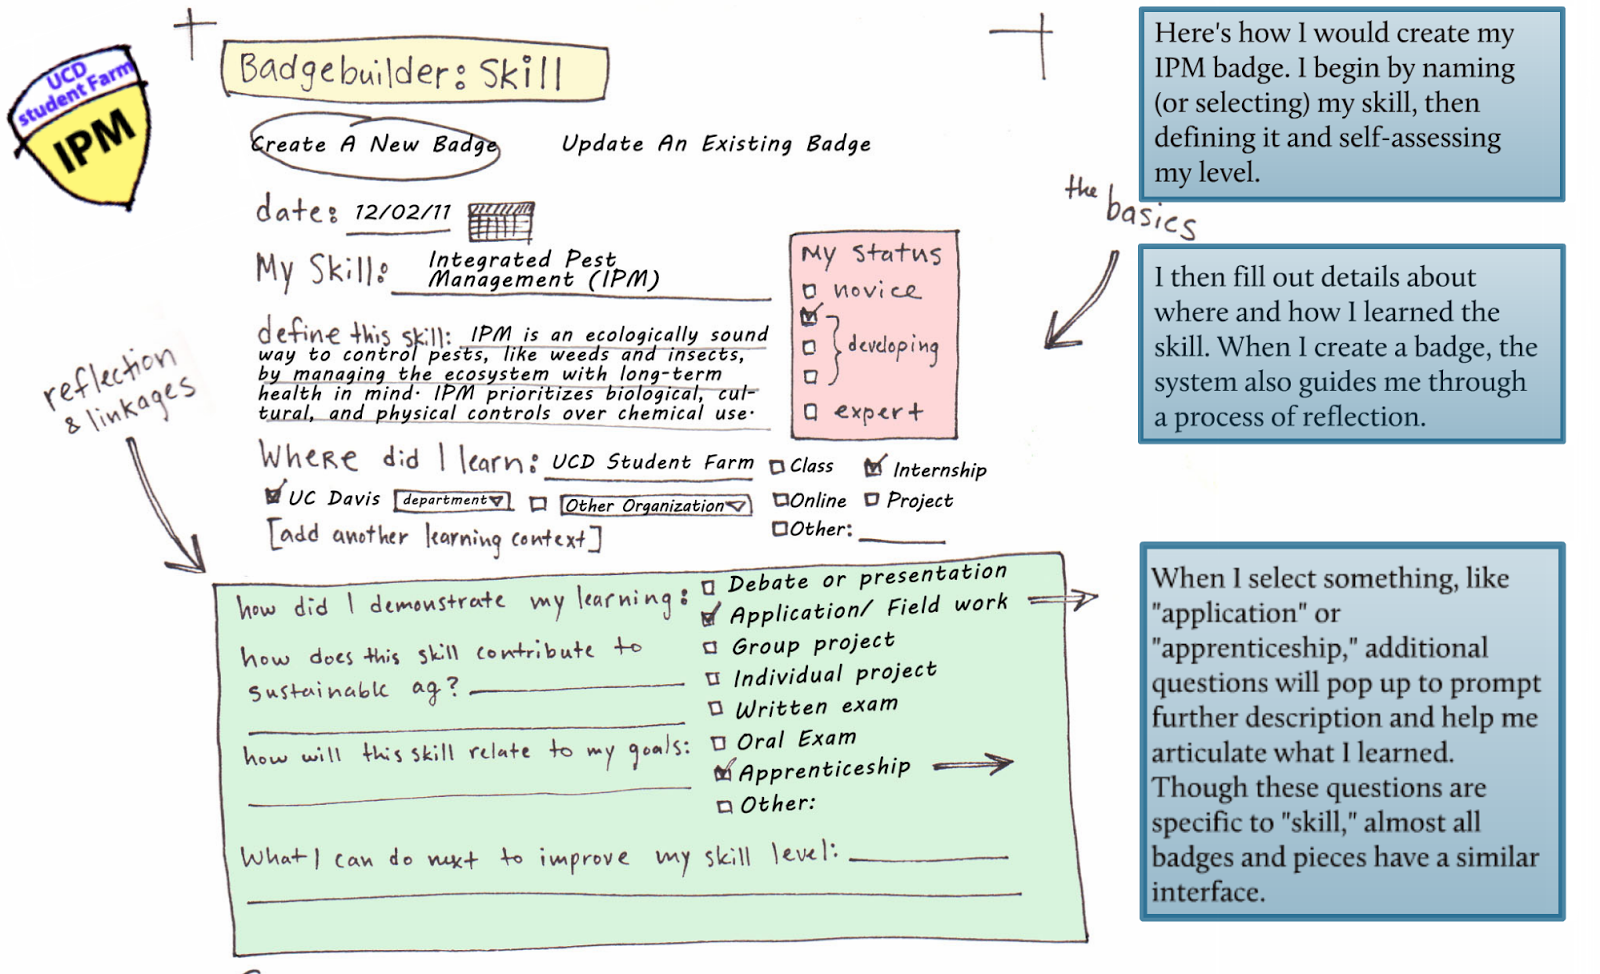 UCD
student Farm
IPM
Badgebuilder: Skill
Create A New Badge
Update An Existing Badge
date: 12/02/11
My Skill: Integrated Pest
Management (IPM)
define this skill: IPM is an ecologically sound
way to control pests, like weeds and insects,
by managing the ecosystem with long-term
health in mind. IPM prioritizes biological, cul-
tural, and physical controls over chemical use.
My Status
novice
developing
expert
the basics
reflection
& linkages
Where did I learn: UCD Student Farm
Class
Internship
UC Davis
department
Other Organization
Online
Project
[add another learning context]
Other:
how did I demonstrate my learning:
Debate or presentation
Application/ Field work
Group project
Individual project
Written exam
Oral Exam
Apprenticeship
Other:
how does this skill contribute to
sustainable ag?
how will this skill relate to my goals:
What I can do next to improve my skill level:
Here's how I would create my
IPM badge. I begin by naming
(or selecting) my skill, then
defining it and self-assessing
my level.
I then fill out details about
where and how I learned the
skill. When I create a badge, the
system also guides me through
a process of reflection.
When I select something, like
"application" or
"apprenticeship," additional
questions will pop up to prompt
further description and help me
articulate what I learned.
Though these questions are
specific to "skill," almost all
badges and pieces have a similar
interface.